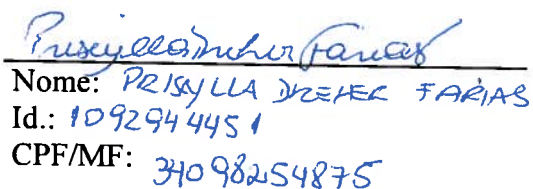 Priscylla Dreher Farias
Nome: PRISCYLLA DREHER FARIAS
Id.: 1092944451
CPF/MF: 34098254875